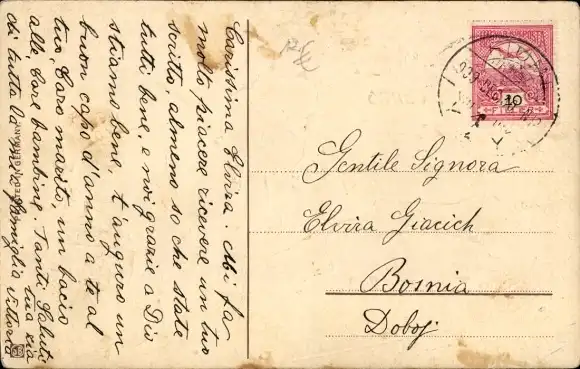 Carissima Elvira. Mi fa
molto piacere ricevere un tuo
scritto, almeno so che state
tutti bene, e noi grazie a Dio
stiamo bene, t'auguro un
buon capo d'anno a te al
tuo, Caro marito, un bacio
alle, Care bambine. Tanti Saluti
di tutta la mia famiglia tua zia
Vittoria
GERMANY
10
Gentile Signora
Elvira Giacich
Bosnia
Doboj